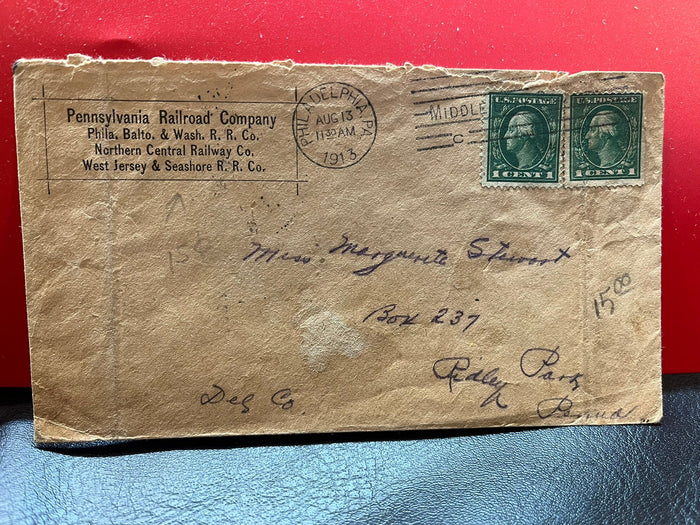 Pennsylvania Railroad Company
Phila. Balto. & Wash. R. R. Co.
Northern Central Railway Co.
West Jersey & Seashore R. R. Co.
PHILADELPHIA, PA.
AUG 13
11 30 AM
1913
MIDDLE
C
U.S. POSTAGE
1 CENT 1
U.S. POSTAGE
1 CENT 1
15
Miss Marguerite Stewart
Box 237
15 00
Ridley Park
Del Co
Penna